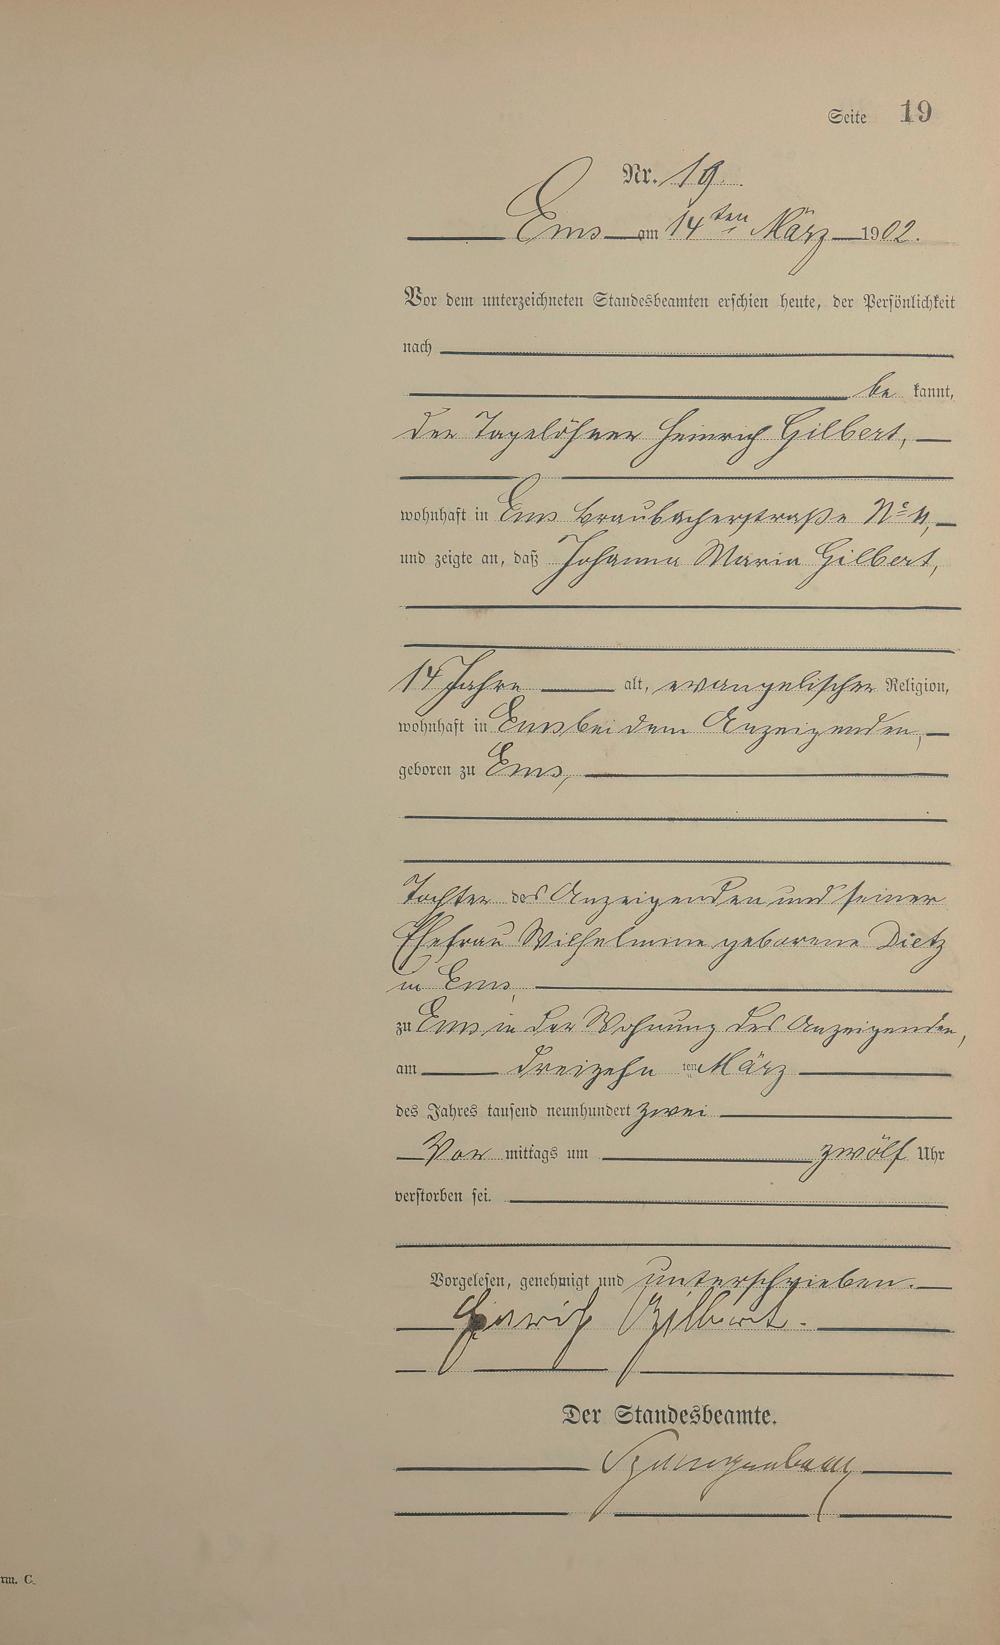 Seite 19
Nr. 19.
Ems am 14ten März 1902.
Vor dem unterzeichneten Standesbeamten erschien heute, der Persönlichkeit
nach
be kannt,
der Tagelöhner Heinrich Gilbert,
wohnhaft in Ems Braubacherstraße No
und zeigte an, daß Johanna Maria Gilbert,
14 Jahre alt, evangelischer Religion,
wohnhaft in Ems bei dem Anzeigenden,
geboren zu Ems,
Tochter des Anzeigenden und seiner
Ehefrau Wilhelmine geborene Dietz
in Ems,
zu Ems in der Wohnung des Anzeigenden,
am dreizehn ten März
des Jahres tausend neunhundert zwei
Vor mittags um zwölf Uhr
verstorben sei.
Vorgelesen, genehmigt und unterschrieben.
Heinrich Gilbert.
Der Standesbeamte.
rm. C.